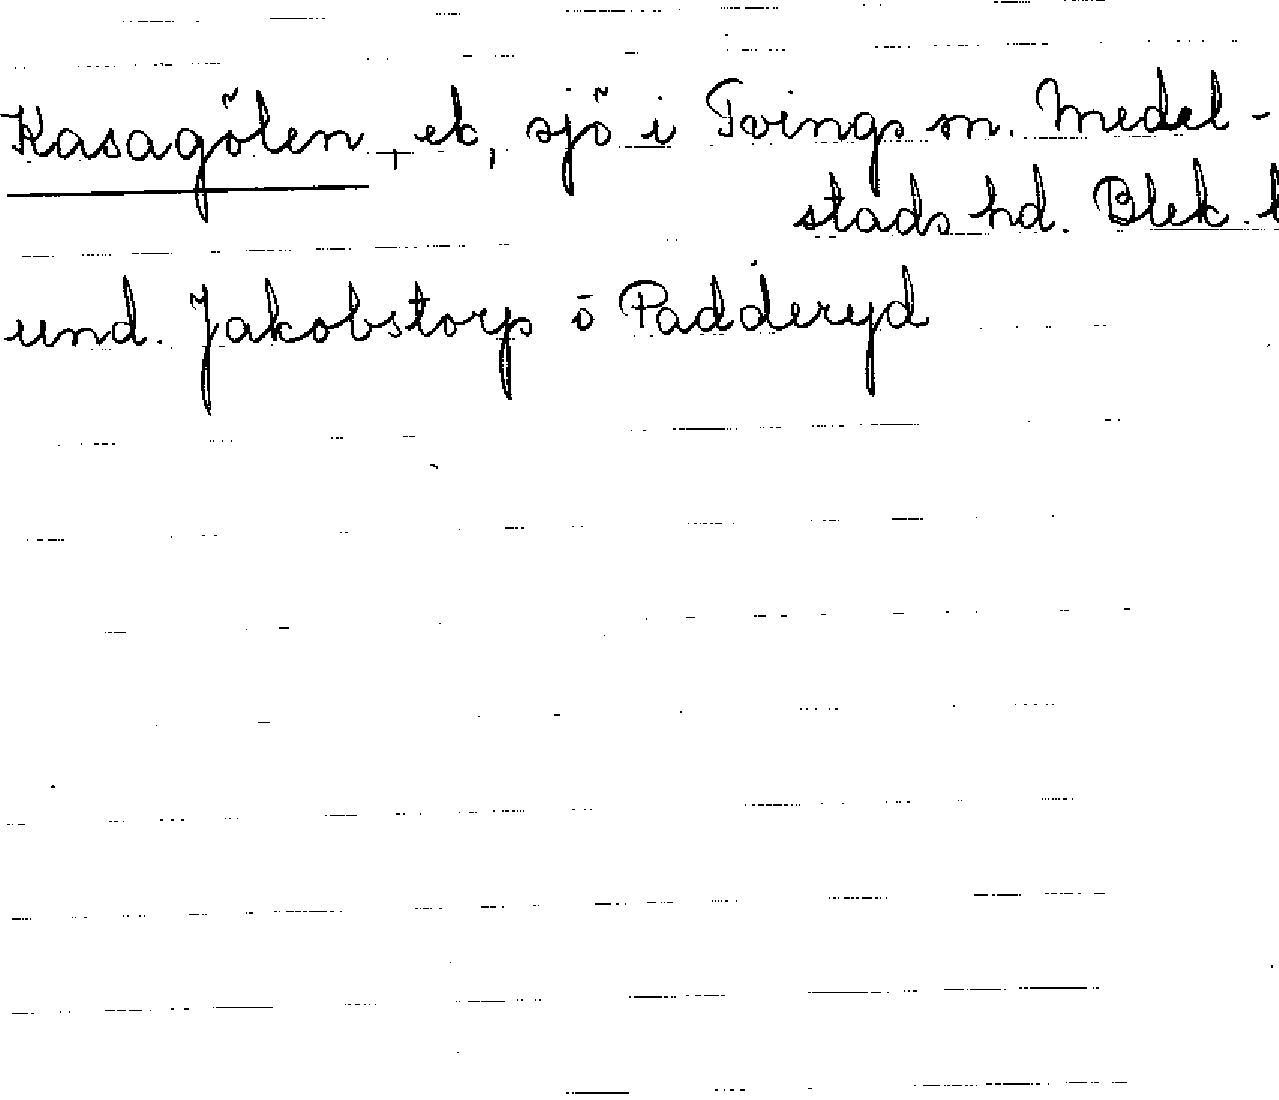 Kasagölen, ek, sjö i Tvings sn. Medel-
stads hd. Blek. l
und. Jakobstorp o Padderyd